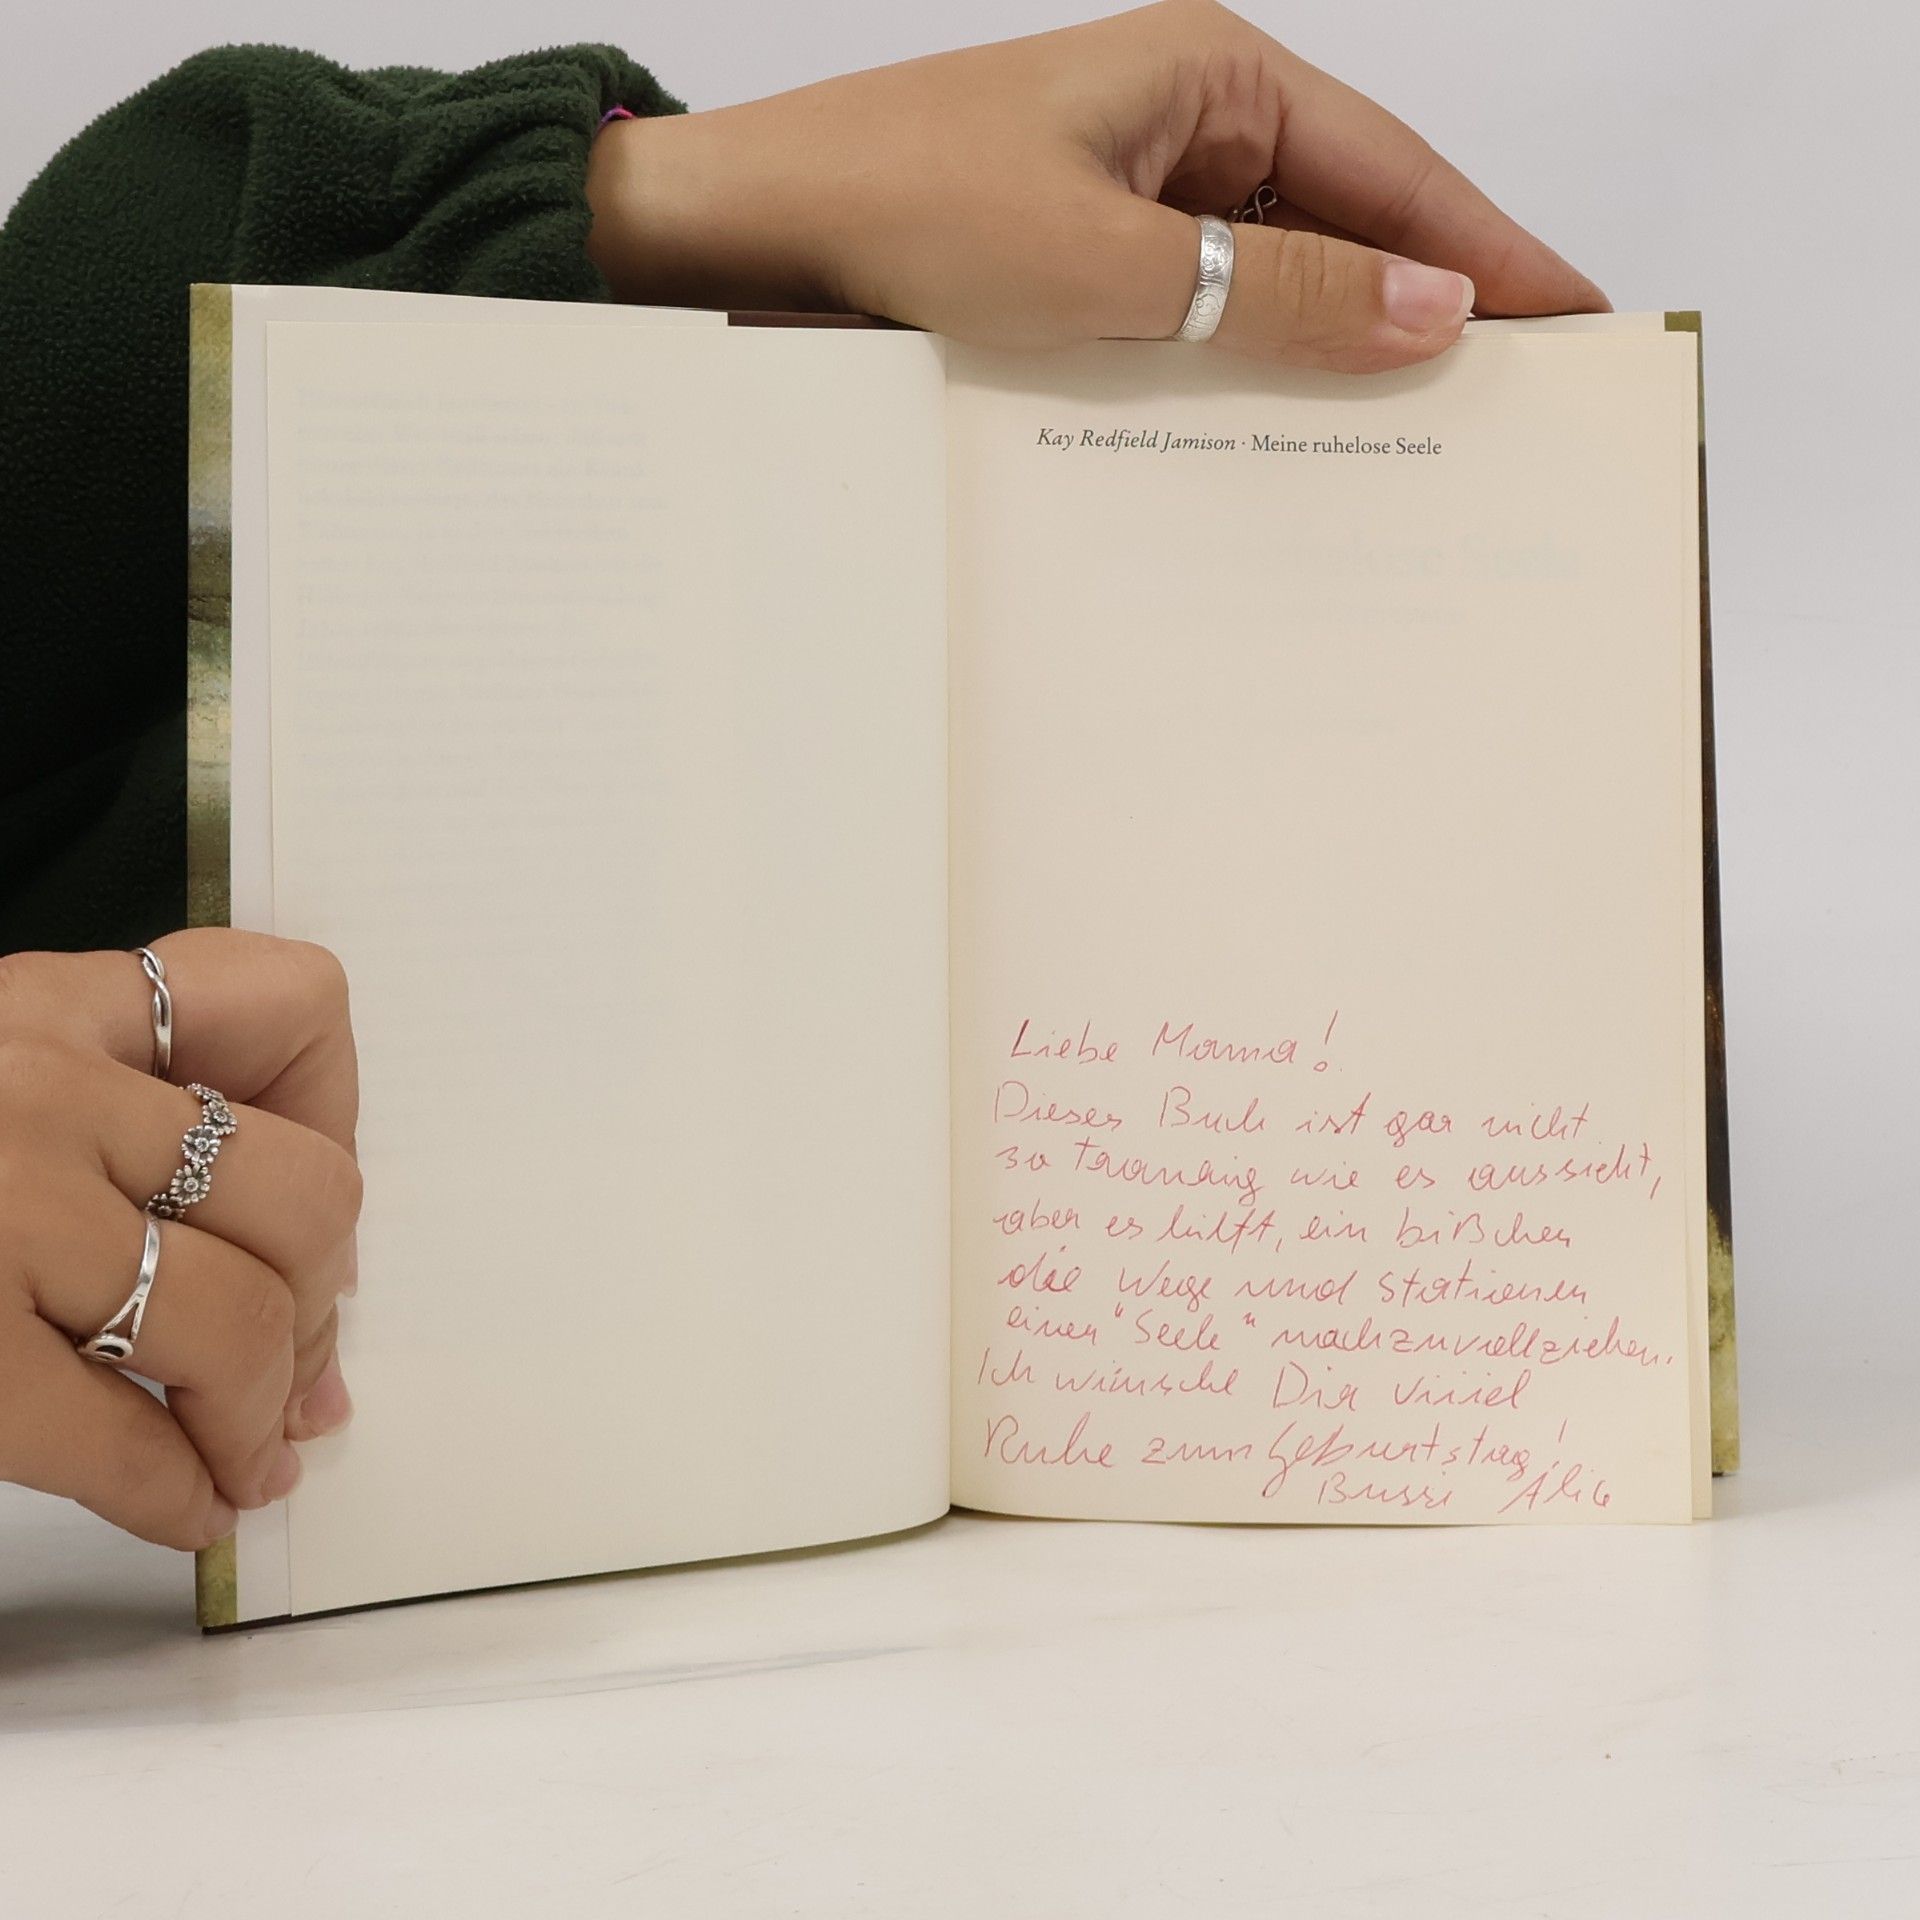 Kay Redfield Jamison · Meine ruhelose Seele
Liebe Mama!
Dieses Buch ist gar nicht
so traurig wie es aussieht,
aber es hilft, ein bißchen
die Wege und Stationen
einer "Seele" nachzuvollziehen.
Ich wünsche Dir viiiel
Ruhe zum Geburtstag!
Bussi